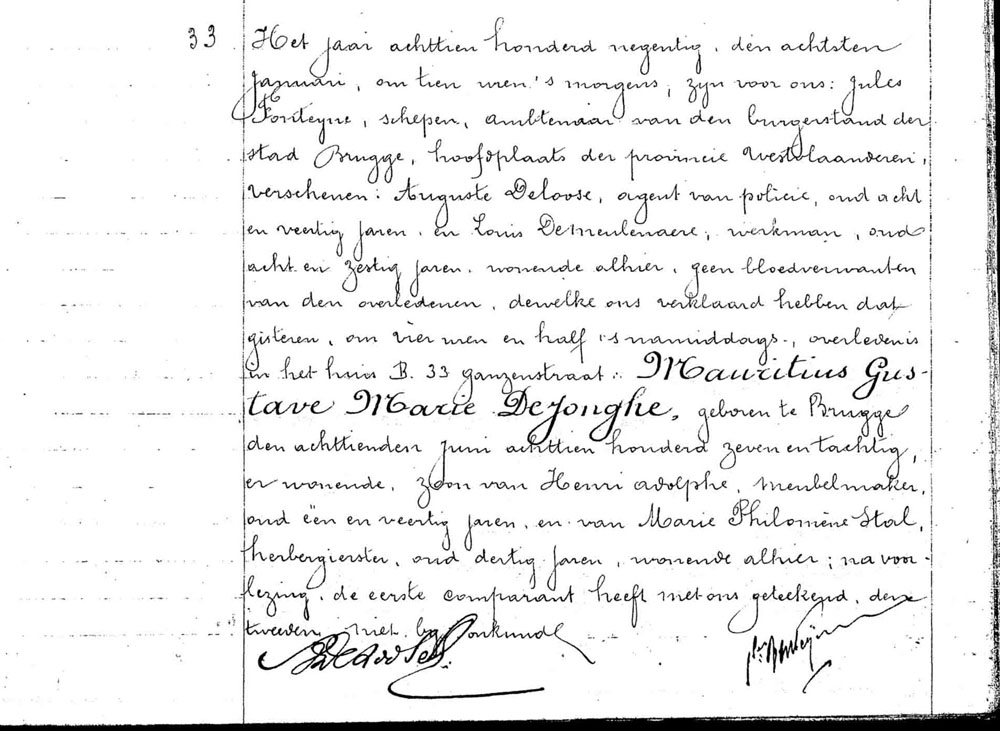 33 Het jaar achttien honderd negentig, den achtsten
Januari, om tien uren 's morgens, zijn voor ons: Jules
Fonteyne, schepen, ambtenaar van den burgerstand der
stad Brugge, hoofdplaats der provincie Westvlaanderen,
verschenen: Auguste Deloose, agent van policie, oud acht
en veertig jaren, en Louis Demeulenaere, werkman, oud
acht en zestig jaren, wonende alhier, geen bloedverwanten
van den overledenen, dewelke ons verklaard hebben dat
gisteren, om vier uren en half 's namiddags, overleden is
in het huis B. 33 ganzenstraat: Mauritius Gus-
tave Marie DeJonghe, geboren te Brugge
den achttienden Juni achttien honderd zeven en tachtig,
er wonende, zoon van Henri adolphe, meubelmaker,
oud één en veertig jaren, en van Marie Philomène Stol,
herbergierster, oud dertig jaren, wonende alhier; na voor-
lezing, de eerste comparant heeft met ons geteekend, den
tweeden niet by onkunde
ADeloose